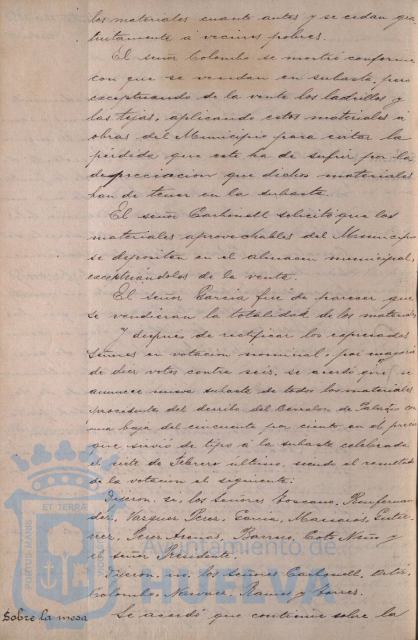 los materiales cuanto antes y se cedan gra-
tuitamente a vecinos pobres.
El señor Colombo se mostró conforme
con que se vendan en subasta, pero
exceptuando de la venta los ladrillos y
las tejas, aplicando estos materiales a
obras del Municipio para evitar la
pérdida que este ha de sufrir por la
depreciación que dichos materiales
han de tener en la subasta.
El señor Carbonell solicitó que los
materiales aprovechables del Municipio
se depositen en el almacen municipal,
exceptuándolos de la venta.
El señor García fué de parecer que
se vendieran la totalidad de los materiales
Y después de rectificar los expresados
señores en votación nominal, por mayoría
de diez votos contra seis, se acordó que se
anuncie nueva subasta de todos los materiales
procedentes del derribo del de con
una baja del cincuenta por ciento en el precio
que sirvió de tipo a la subasta celebrada
el siete de Febrero último, siendo el resultado
de la votación el siguiente:
Dijeron si, los Señores
Vazquez Perez, García, Gutie-
rrez, Perez Barrero, Coto y
el señor Presidente.
Dijeron no, los señores Carbonell,
Colombo, Ramos y Torres.
Sobre la mesa
Se acordó que continúe sobre la
PORTUS MARIS ET TERRAE
Ayuntamiento de
HUELVA